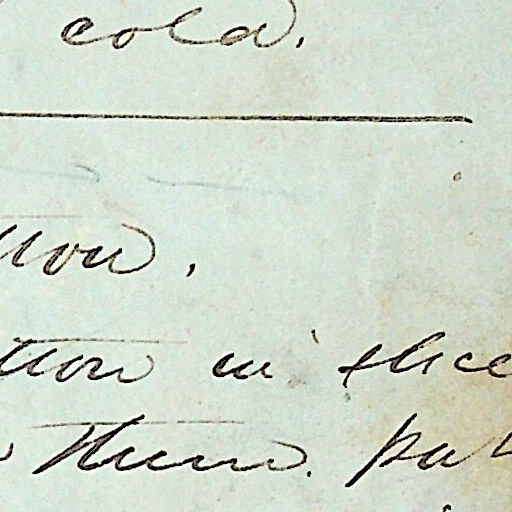 cold.
tton.
tton in slice
them. put